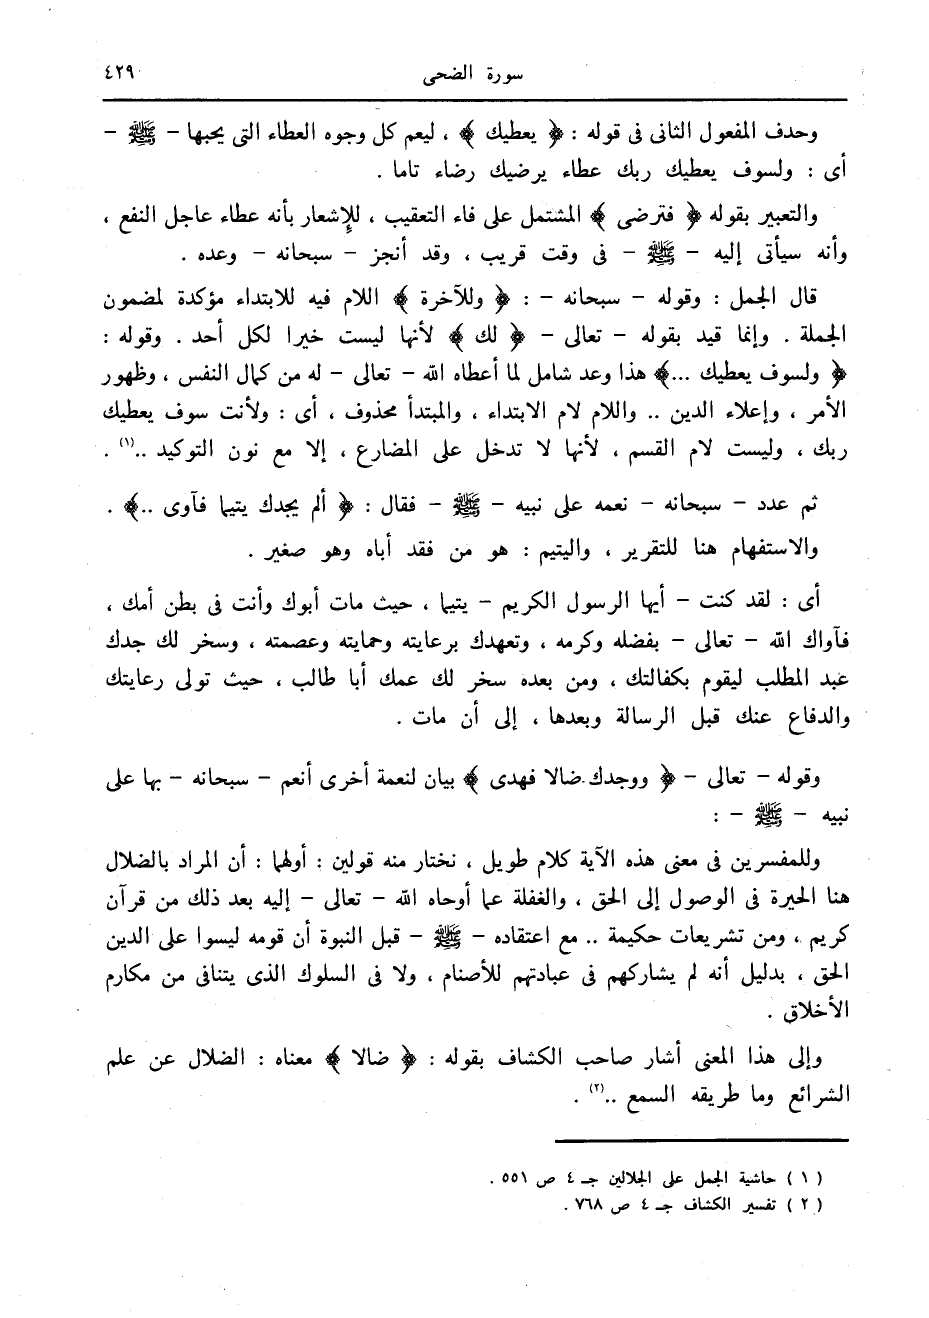 سورة الضحى ٤٢٩
وحذف المفعول الثانى فى قوله : ﴿ يعطيك ﴾ ، ليعم كل وجوه العطاء التى يحبها – ﷺ –
أى : ولسوف يعطيك ربك عطاء يرضيك رضاء تاما .
والتعبير بقوله ﴿ فترضى ﴾ المشتمل على فاء التعقيب ، للإشعار بأنه عطاء عاجل النفع ،
وأنه سيأتى إليه – ﷺ – فى وقت قريب ، وقد أنجز – سبحانه – وعده .
قال الجمل : وقوله – سبحانه – : ﴿ وللآخرة ﴾ اللام فيه للابتداء مؤكدة لمضمون
الجملة . وإنما قيد بقوله – تعالى – ﴿ لك ﴾ لأنها ليست خيرا لكل أحد . وقوله :
﴿ ولسوف يعطيك ...﴾ هذا وعد شامل لما أعطاه الله – تعالى – له من كمال النفس ، وظهور
الأمر ، وإعلاء الدين .. واللام لام الابتداء ، والمبتدأ محذوف ، أى : ولأنت سوف يعطيك
ربك ، وليست لام القسم ، لأنها لا تدخل على المضارع ، إلا مع نون التوكيد ..(١) .
ثم عدد – سبحانه – نعمه على نبيه – ﷺ – فقال : ﴿ ألم يجدك يتيما فآوى ..﴾ .
والاستفهام هنا للتقرير ، واليتيم : هو من فقد أباه وهو صغير .
أى : لقد كنت – أيها الرسول الكريم – يتيما ، حيث مات أبوك وأنت فى بطن أمك ،
فآواك الله – تعالى – بفضله وكرمه ، وتعهدك برعايته وحمايته وعصمته ، وسخر لك جدك
عبد المطلب ليقوم بكفالتك ، ومن بعده سخر لك عمك أبا طالب ، حيث تولى رعايتك
والدفاع عنك قبل الرسالة وبعدها ، إلى أن مات .
وقوله – تعالى – ﴿ ووجدك ضالا فهدى ﴾ بيان لنعمة أخرى أنعم – سبحانه – بها على
نبيه – ﷺ – :
وللمفسرين فى معنى هذه الآية كلام طويل ، نختار منه قولين : أولهما : أن المراد بالضلال
هنا الحيرة فى الوصول إلى الحق ، والغفلة عما أوحاه الله – تعالى – إليه بعد ذلك من قرآن
كريم ، ومن تشريعات حكيمة .. مع اعتقاده – ﷺ – قبل النبوة أن قومه ليسوا على الدين
الحق ، بدليل أنه لم يشاركهم فى عبادتهم للأصنام ، ولا فى السلوك الذى يتنافى من مكارم
الأخلاق .
وإلى هذا المعنى أشار صاحب الكشاف بقوله : ﴿ ضالا ﴾ معناه : الضلال عن علم
الشرائع وما طريقه السمع ..(٢) .
( ١ ) حاشية الجمل على الجلالين جـ ٤ ص ٥٥١ .
( ٢ ) تفسير الكشاف جـ ٤ ص ٧٦٨ .